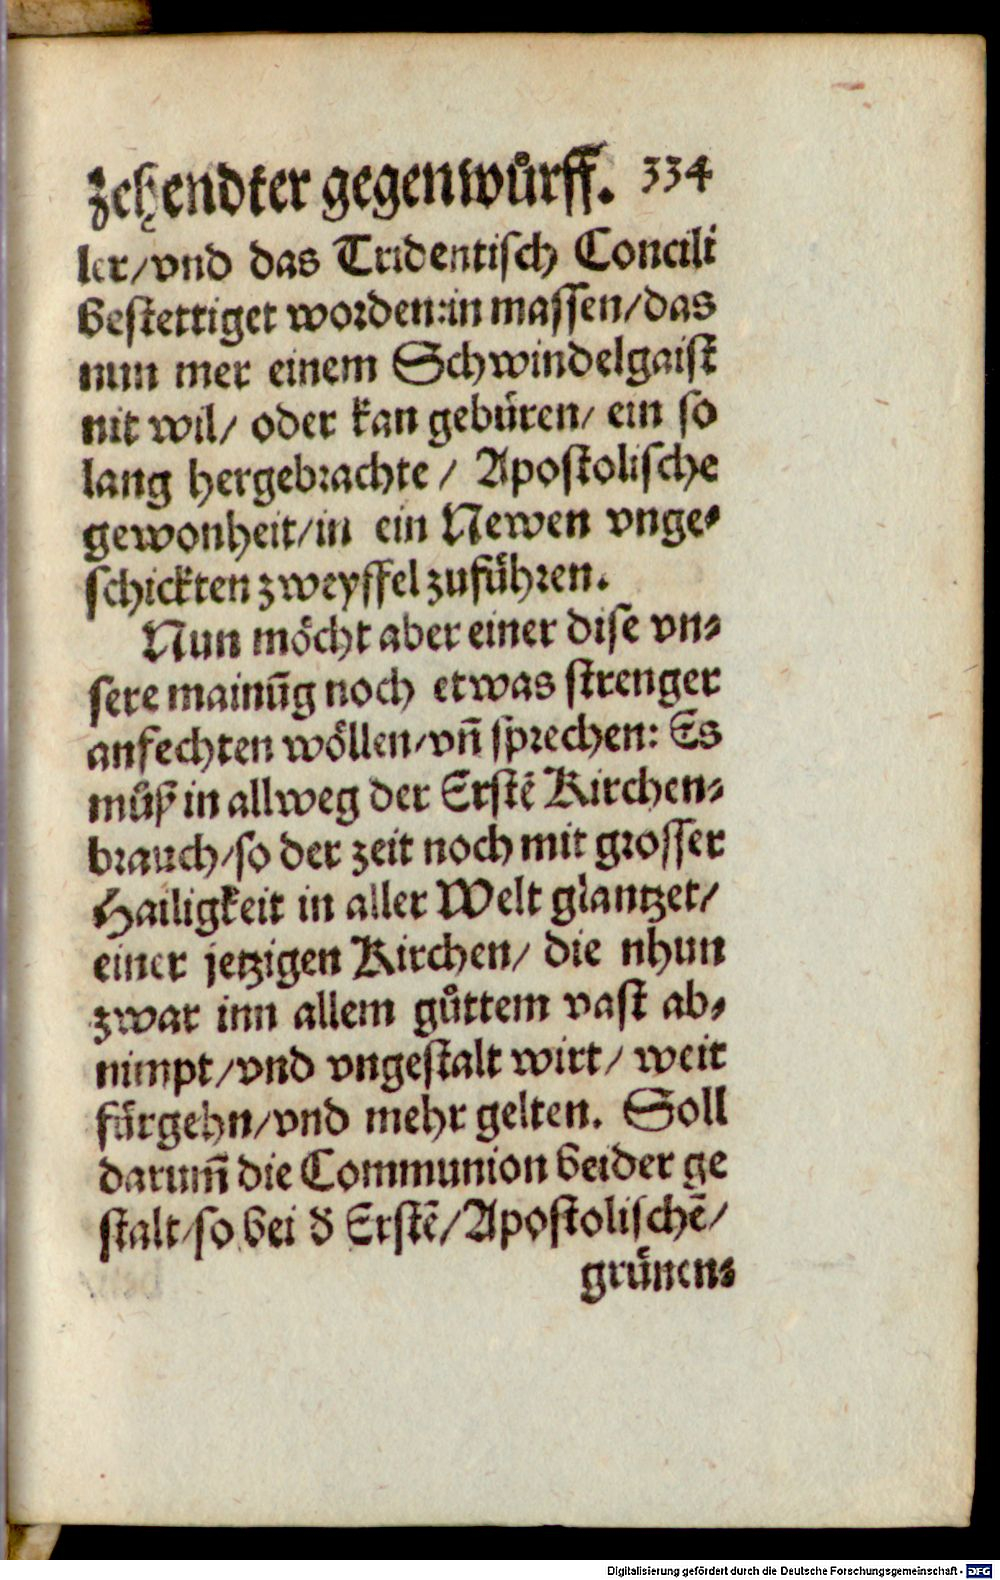 Zehendter gegenwůrff. 334
ler/vnd das Tridentisch Concili
bestettiget worden:in massen/das
nun mer einem Schwindelgaist
nit wil/ oder kan gebüren/ ein so
lang hergebrachte/ Apostolische
gewonheit/in ein Newen vnge-
schickten zweyffel zuführen.
Nun möcht aber einer dise vn-
sere mainūg noch etwas strenger
anfechten wöllen/vn̄ sprechen: Es
můß in allweg der Erstē Kirchen-
brauch/so der zeit noch mit grosser
Hailigkeit in aller Welt glantzet/
einer jetzigen Kirchen/ die nhun
zwar inn allem gůttem vast ab-
nimpt/vnd vngestalt wirt/ weit
fürgehn/vnd mehr gelten. Soll
darum̄ die Communion beider ge
stalt/so bei d̄ Erstē/Apostolischē/
grünen-
Digitalisierung gefördert durch die Deutsche Forschungsgemeinschaft - DFG